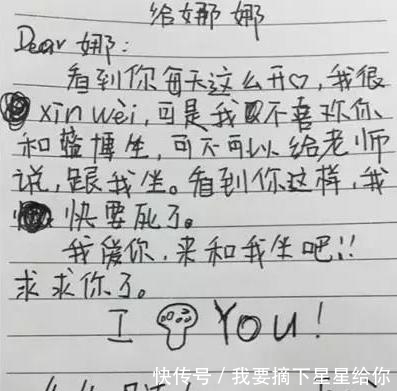 给娜娜
Dear 娜:
看到你每天这么开♡,我很
xin wèi,可是我不喜欢你
和蓝博生,可不可以给老师
说,跟我坐。看到你这样,我
快要死了。
我爱你,来和我坐吧!!
求求你了。
I You!
快传号/我要摘下星星给你